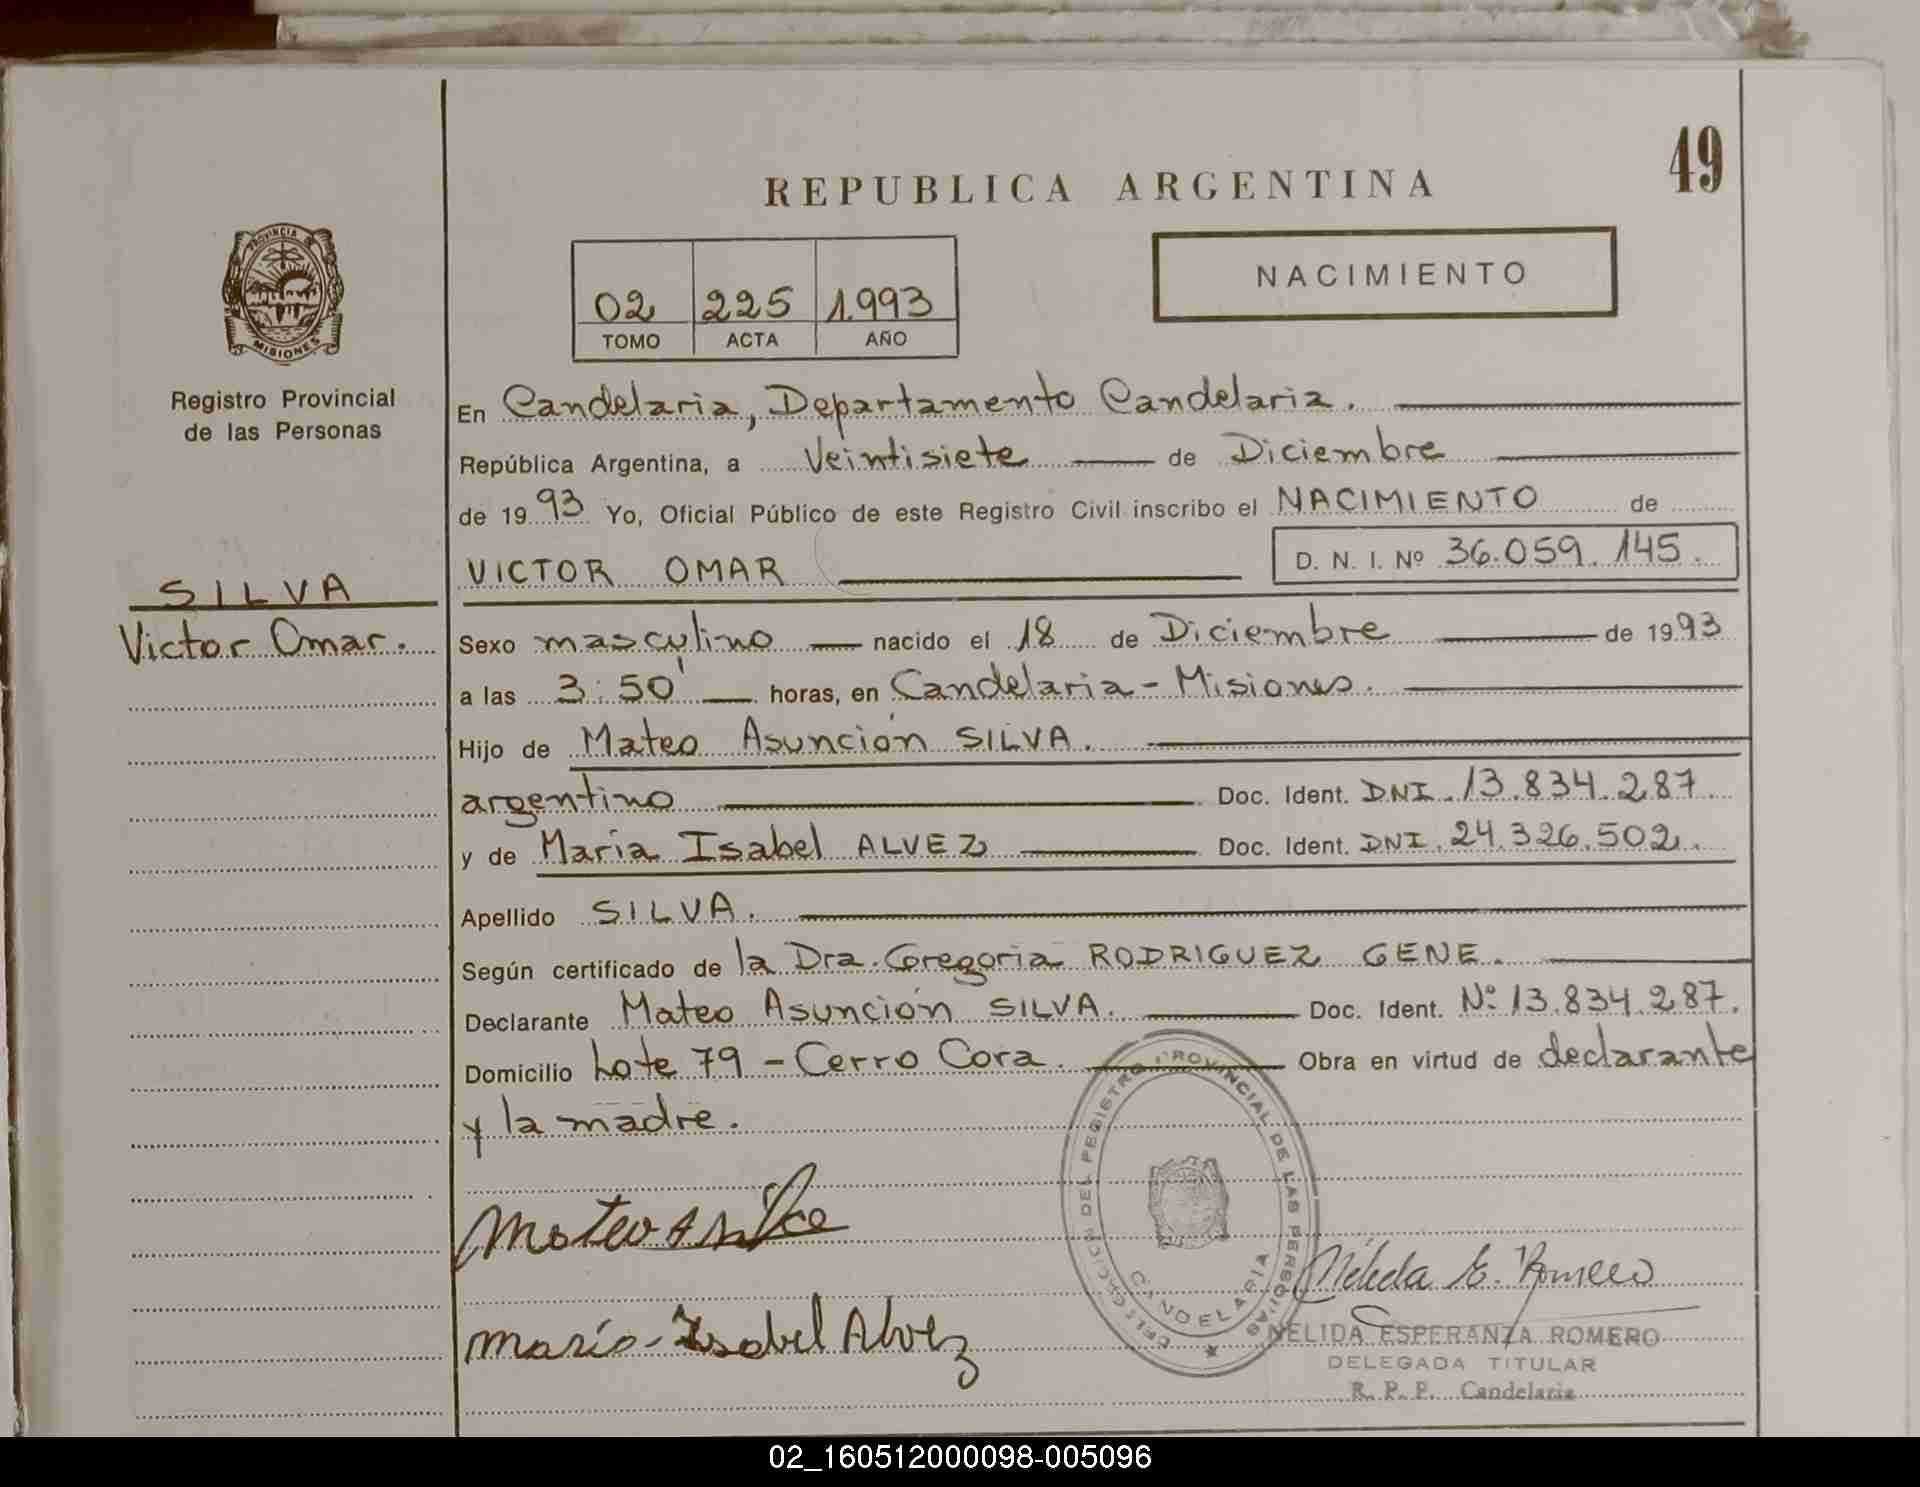 49
REPUBLICA ARGENTINA
PROVINCIA DE
MISIONES
Registro Provincial
de las Personas
NACIMIENTO
02 225 1.993
TOMO ACTA AÑO
En Candelaria, Departamento Candelaria.
República Argentina, a Veintisiete de Diciembre
de 19 93 Yo, Oficial Público de este Registro Civil inscribo el NACIMIENTO de
VICTOR OMAR D. N. I. Nº 36.059.145.
SILVA
Victor Omar.
Sexo masculino nacido el 18 de Diciembre de 19 93
a las 3:50' horas, en Candelaria - Misiones.
Hijo de Mateo Asunción SILVA.
argentino Doc. Ident. DNI. 13.834.287.
y de María Isabel ALVEZ Doc. Ident. DNI. 24.326.502.
Apellido SILVA.
Según certificado de la Dra. Gregoria RODRIGUEZ GENE.
Declarante Mateo Asunción SILVA. Doc. Ident. Nº 13.834.287.
Domicilio Lote 79 - Cerro Cora. Obra en virtud de declarante
y la madre.
DELEGACION DEL REGISTRO PROVINCIAL DE LAS PERSONAS
CANDELARIA
Mateo A Silva
María - Isabel Alvez
Nélida E. Romero
NELIDA ESPERANZA ROMERO
DELEGADA TITULAR
R. P. P. Candelaria
02_160512000098-005096